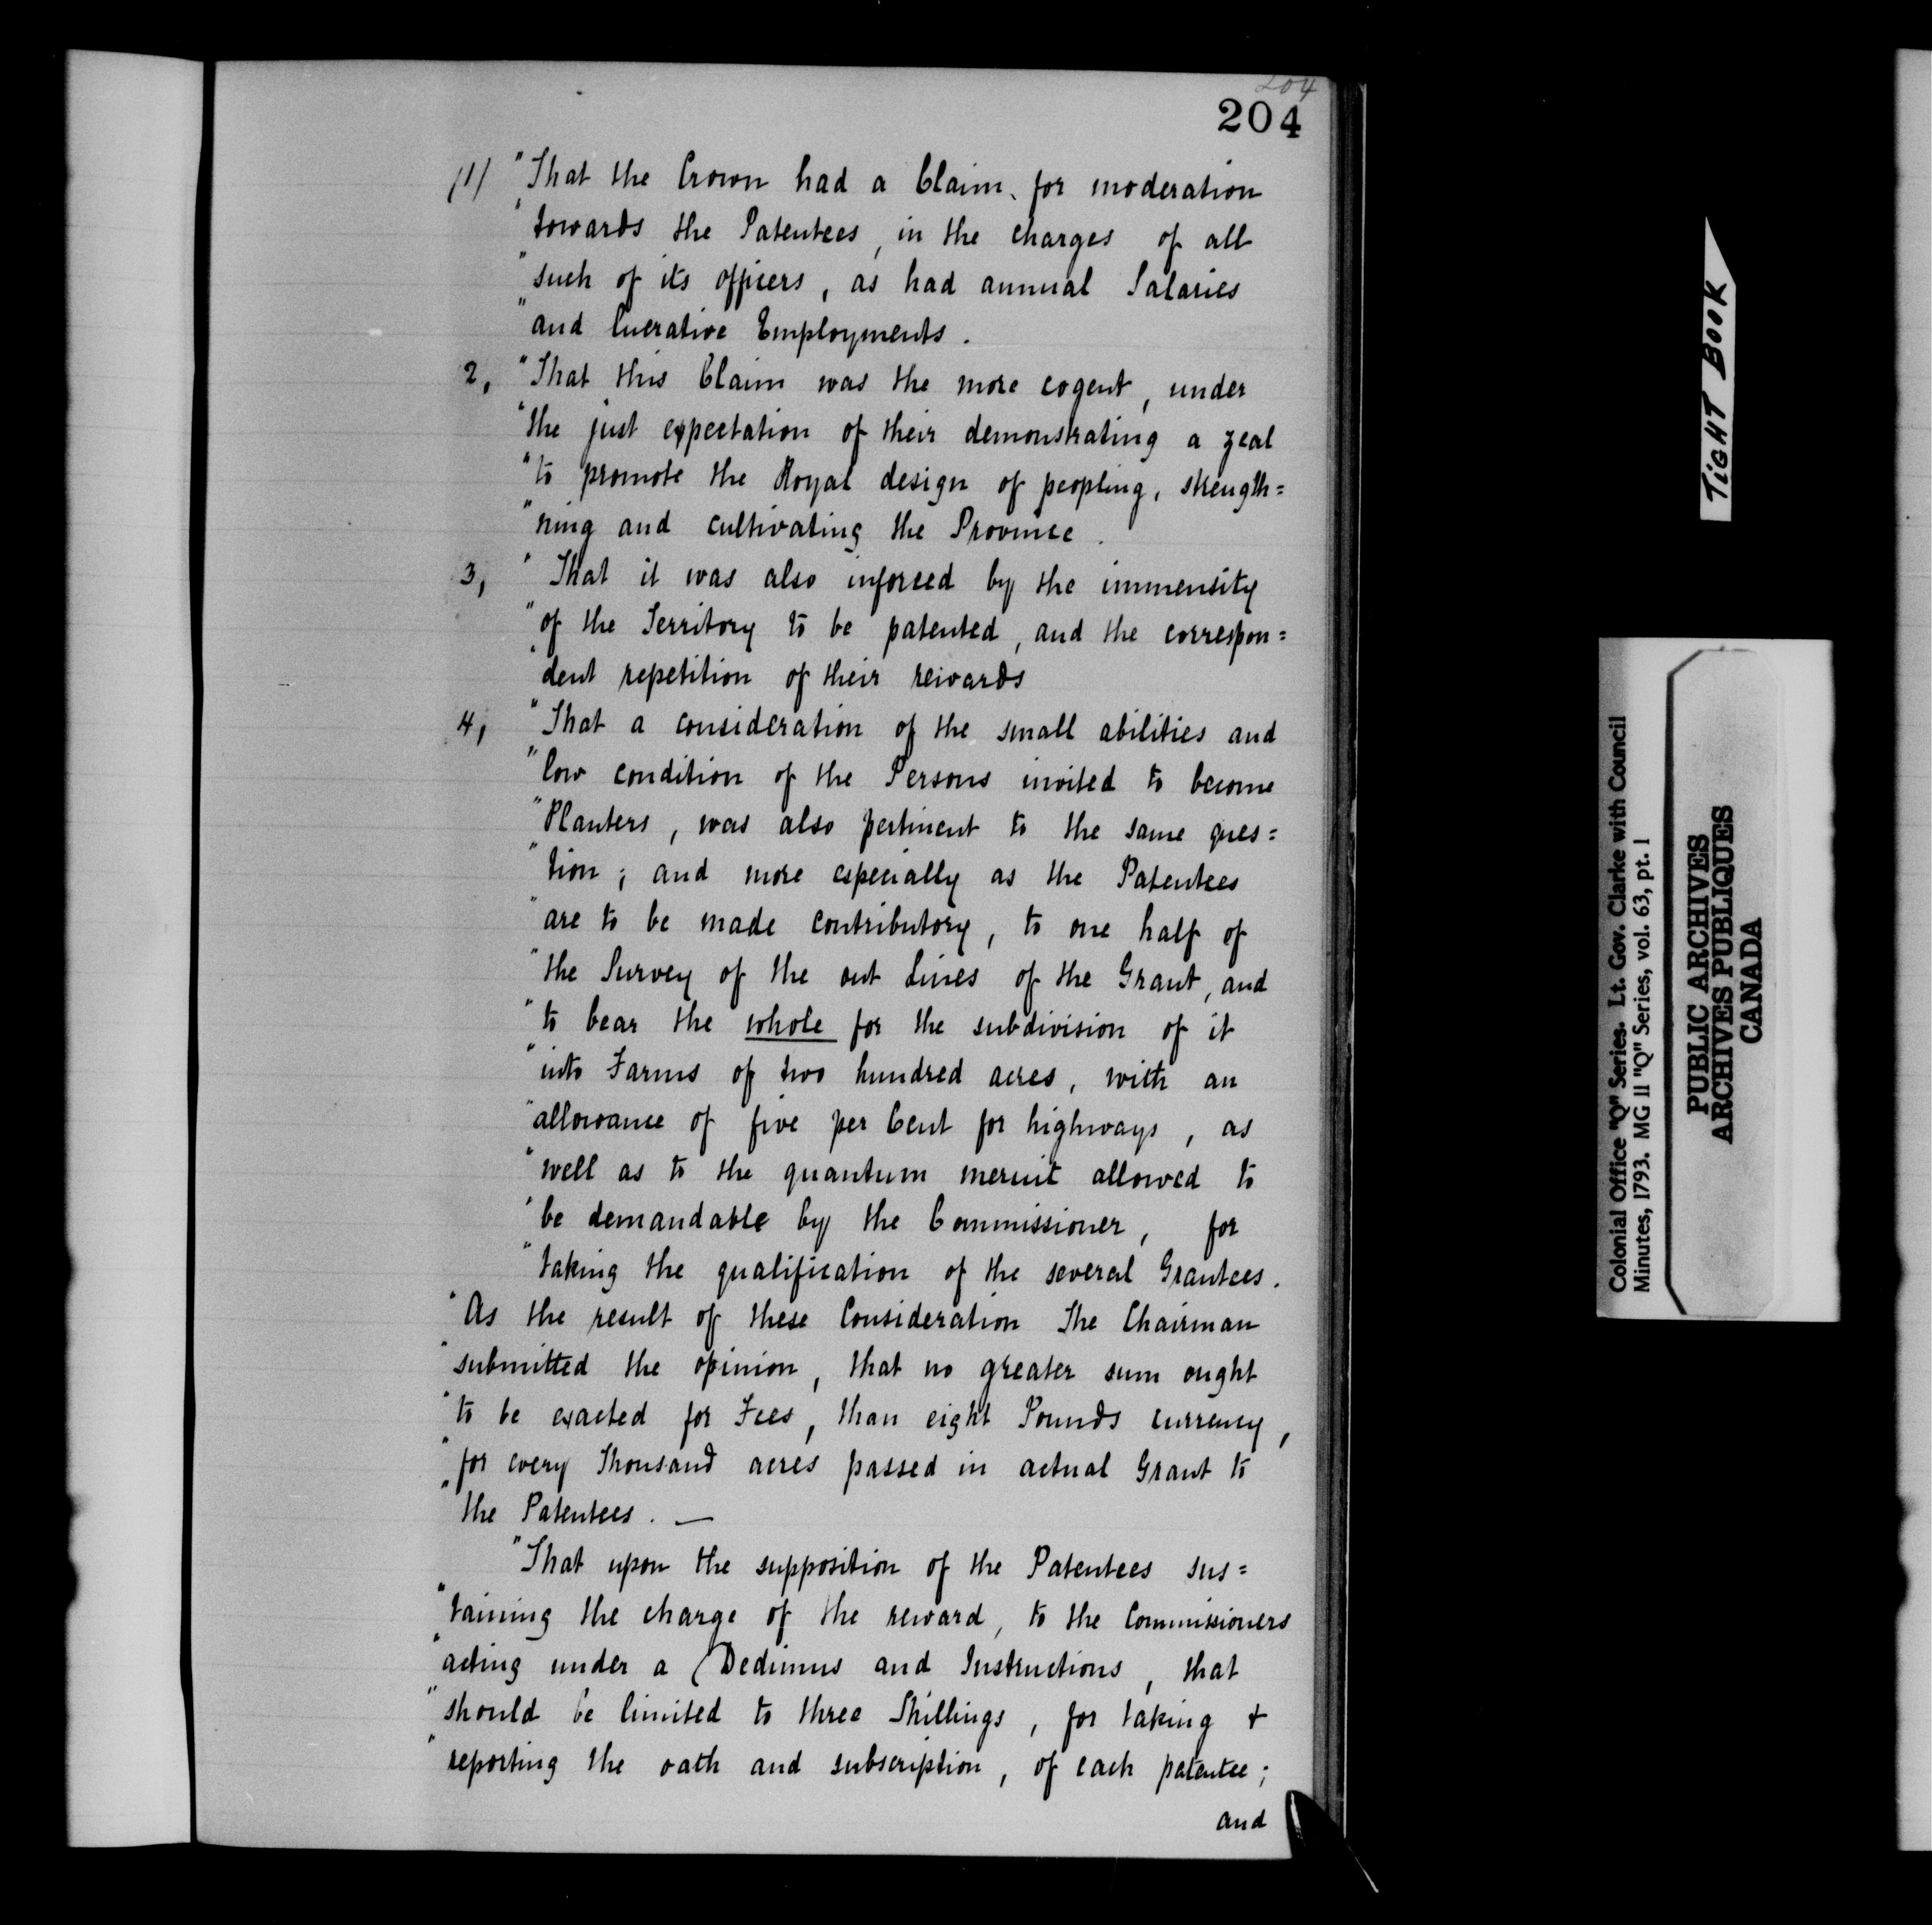 204
204
(1) "That the Crown had a Claim, for moderation
"towards the Patentees, in the charges of all
"such of its officers, as had annual Salaries
"and lucrative Employments.
2, "That this Claim was the more cogent, under
"the just expectation of their demonstrating a zeal
"to promote the Royal design of peopling, strength=
"ning and cultivating the Province.
3, "That it was also inforced by the immensity
"of the Territory to be patented, and the correspon=
"dent repetition of their rewards
4, "That a consideration of the small abilities and
"low condition of the Persons invited to become
"Planters, was also pertinent to the same ques=
"tion; and more especially as the Patentees
"are to be made contributory, to one half of
"the Survey of the out Lines of the Grant, and
"to bear the whole for the subdivision of it
"into Farms of two hundred acres, with an
"allowance of five per Cent for highways, as
"well as to the quantum meruit allowed to
"be demandable by the Commissioner, for
"taking the qualification of the several Grantees.
"As the result of these Consideration The Chairman
"submitted the opinion, that no greater sum ought
"to be exacted for Fees, than eight Pounds currency,
"for every Thousand acres passed in actual Grant to
"the Patentees. —
"That upon the supposition of the Patentees sus=
"taining the charge of the reward, to the Commissioners
"acting under a (Dedimus and Instructions, that
"should be limited to three Shillings, for taking &
"reporting the oath and subscription, of each patentee;
and
TIGHT BOOK
Colonial Office "Q" Series. Lt. Gov. Clarke with Council
Minutes, 1793. MG 11 "Q" Series, vol. 63, pt. 1
PUBLIC ARCHIVES
ARCHIVES PUBLIQUES
CANADA